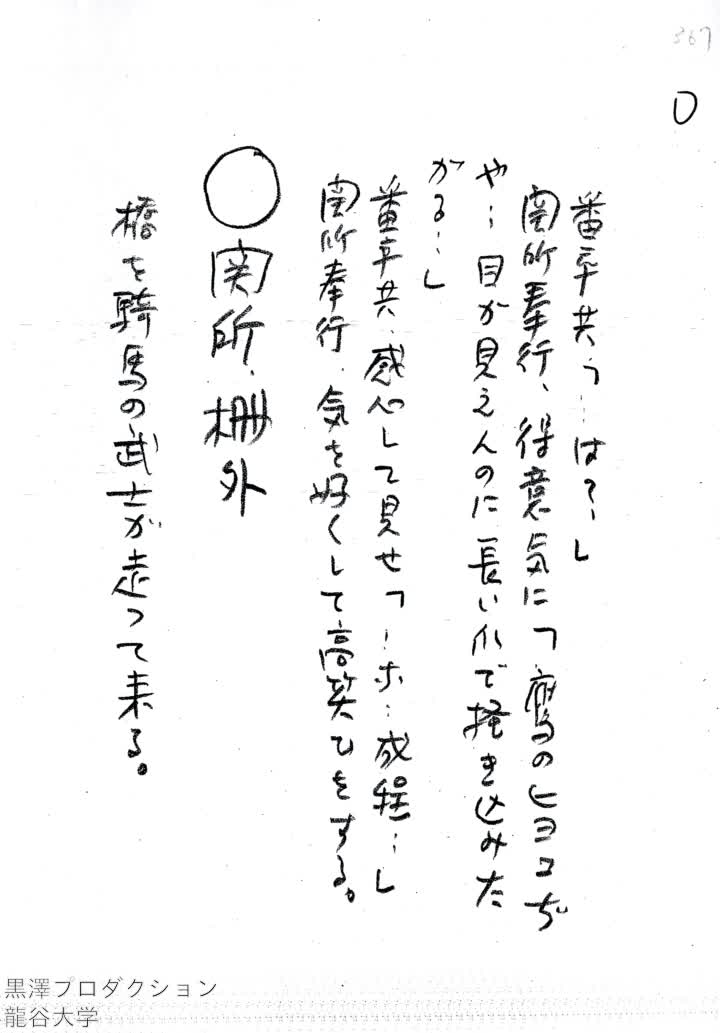 367
番卒共「…は？…」
関所奉行、得意気に「鷹のヒヨコぢ
や…目が見えんのに長い爪で掻き込みた
がる…」
番卒共、感心して見せ「…ホ…成程…」
関所奉行、気を好くして高笑ひをする。
○関所・柵外
橋を騎馬の武士が走って来る。
黒澤プロダクション
龍谷大学